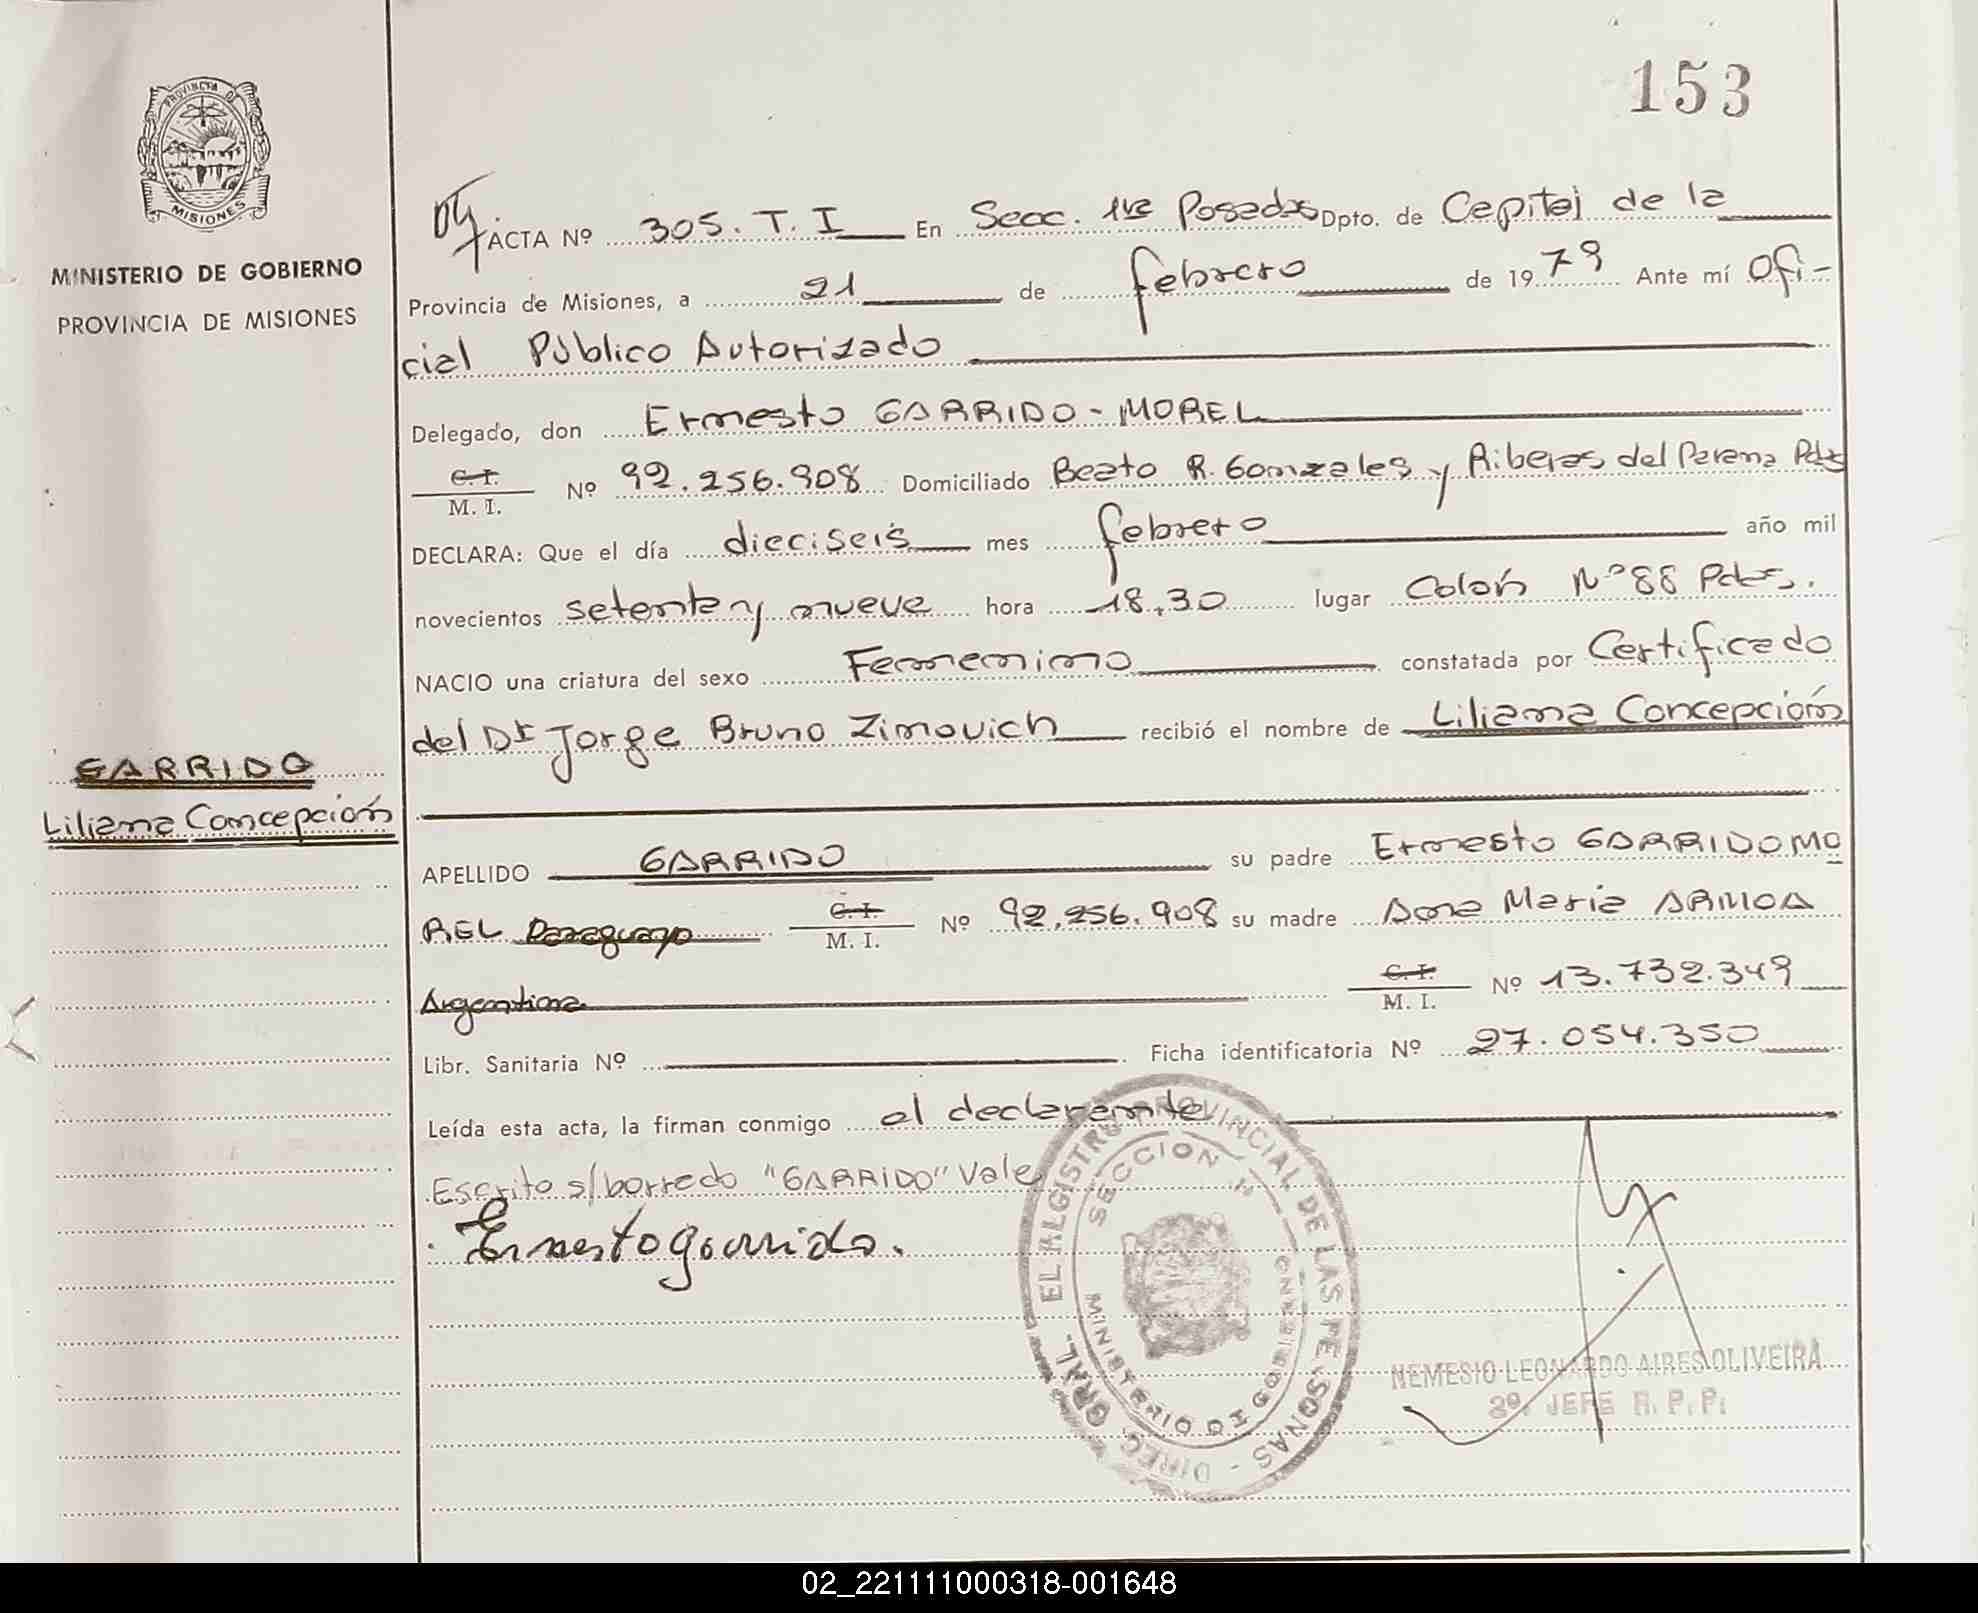 153
PROVINCIA DE
MISIONES
MINISTERIO DE GOBIERNO
PROVINCIA DE MISIONES
ACTA Nº 305. T. I En Secc. 1ra Posadas Dpto. de Capital de la
Provincia de Misiones, a 21 de febrero de 1979 Ante mí Ofi-
cial Público Autorizado
Delegado, don Ernesto GARRIDO-MOREL
C. I.
M. I. Nº 92.256.908 Domiciliado Beato R. Gonzales y Riberas del Parana Pdas
DECLARA: Que el día dieciseis mes febrero año mil
novecientos setenta y nueve hora 18,30 lugar Colón Nº 88 Pdas.
NACIO una criatura del sexo Femenino constatada por Certificado
del Dr Jorge Bruno Zimovich recibió el nombre de Liliana Concepción
GARRIDO
Liliana Concepción
APELLIDO GARRIDO su padre Ernesto GARRIDO MO
REL Paraguayo C. I.
M. I. Nº 92.256.908 su madre Ana Maria ARMOA
Argentina C. I.
M. I. Nº 13.732.349
Libr. Sanitaria Nº Ficha identificatoria Nº 27.054.350
Leída esta acta, la firman conmigo el declarante
Escrito s/borrado "GARRIDO" Vale
Ernesto garrido.
DIREC. GRAL. EL REGISTRO PROVINCIAL DE LAS PERSONAS
SECCION
MINISTERIO DE GOBIERNO
NEMESIO LEONARDO AIRES OLIVEIRA
2º. JEFE R. P. P.
02_221111000318-001648